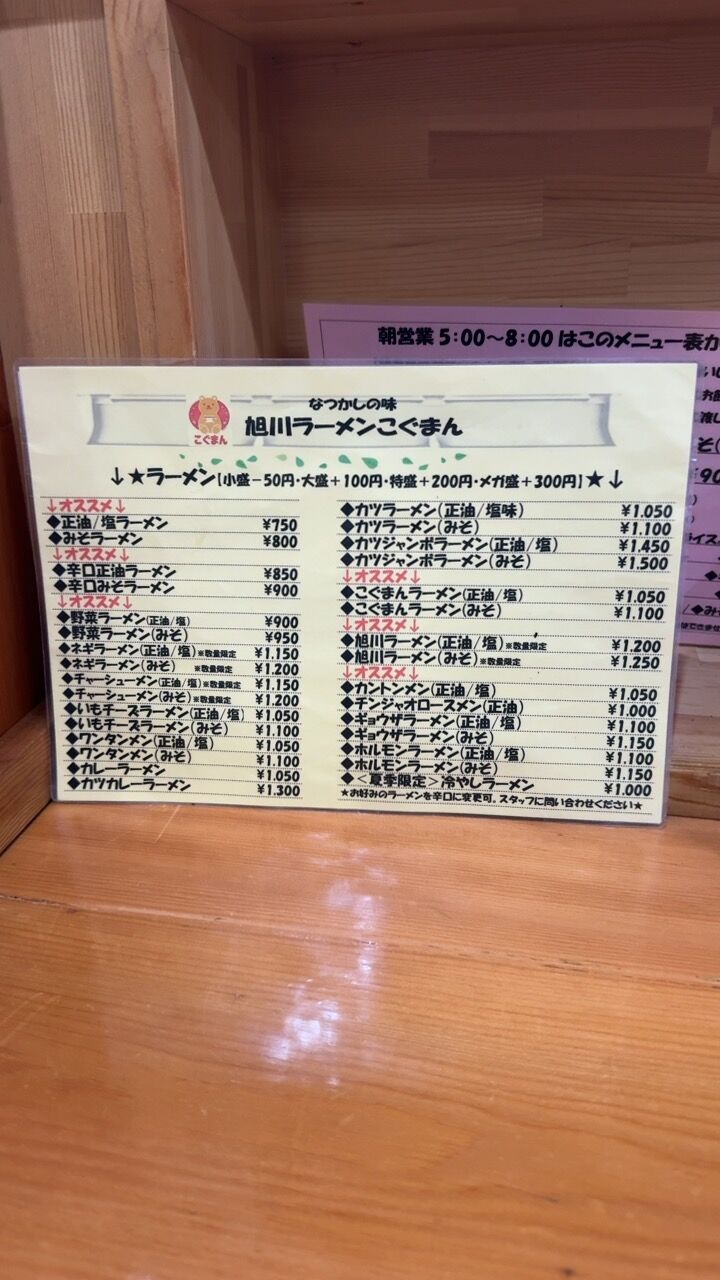 朝営業 5:00〜8:00 はこのメニュー表か
なつかしの味
旭川ラーメンこぐまん
こぐまん
↓★ラーメン【小盛−50円・大盛＋100円・特盛＋200円・メガ盛＋300円】★↓
↓オススメ↓
◆正油/塩ラーメン ¥750
◆みそラーメン ¥800
↓オススメ↓
◆辛口正油ラーメン ¥850
◆辛口みそラーメン ¥900
↓オススメ↓
◆野菜ラーメン(正油/塩) ¥900
◆野菜ラーメン(みそ) ¥950
◆ネギラーメン(正油/塩)※数量限定 ¥1.150
◆ネギラーメン(みそ) ※数量限定 ¥1.200
◆チャーシューメン(正油/塩)※数量限定 ¥1.150
◆チャーシューメン(みそ)※数量限定 ¥1.200
◆いもチーズラーメン(正油/塩) ¥1.050
◆いもチーズラーメン(みそ) ¥1.100
◆ワンタンメン(正油/塩) ¥1.050
◆ワンタンメン(みそ) ¥1.100
◆カレーラーメン ¥1.050
◆カツカレーラーメン ¥1.300
◆カツラーメン(正油/塩味) ¥1.050
◆カツラーメン(みそ) ¥1.100
◆カツジャンボラーメン(正油/塩) ¥1.450
◆カツジャンボラーメン(みそ) ¥1.500
↓オススメ↓
◆こぐまんラーメン(正油/塩) ¥1.050
◆こぐまんラーメン(みそ) ¥1.100
↓オススメ↓
◆旭川ラーメン(正油/塩)※数量限定 ¥1.200
◆旭川ラーメン(みそ)※数量限定 ¥1.250
↓オススメ↓
◆カントンメン(正油/塩) ¥1.050
◆チンジャオロースメン(正油) ¥1.000
◆ギョウザラーメン(正油/塩) ¥1.100
◆ギョウザラーメン(みそ) ¥1.150
◆ホルモンラーメン(正油/塩) ¥1.100
◆ホルモンラーメン(みそ) ¥1.150
◆＜夏季限定＞冷やしラーメン ¥1.000
★お好みのラーメンを辛口に変更可。スタッフに問い合わせください★